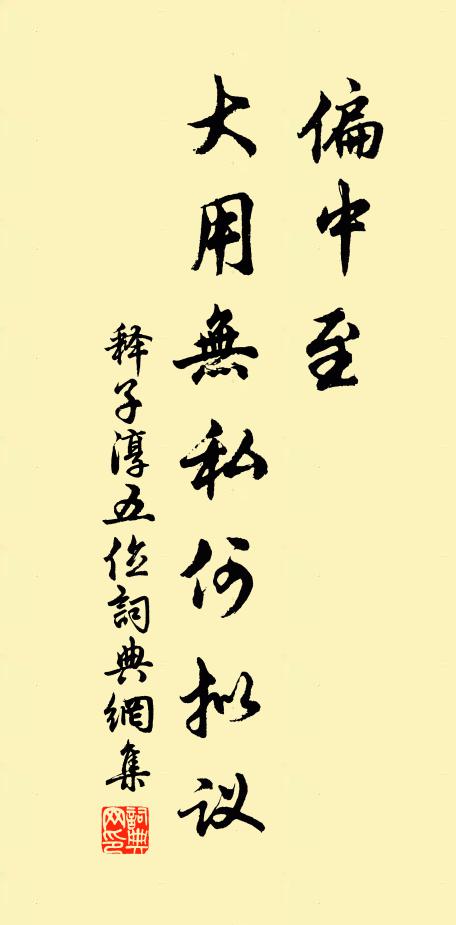 偏中至
大用無私何拟议
释子淳五位詞典網集
詞典網印